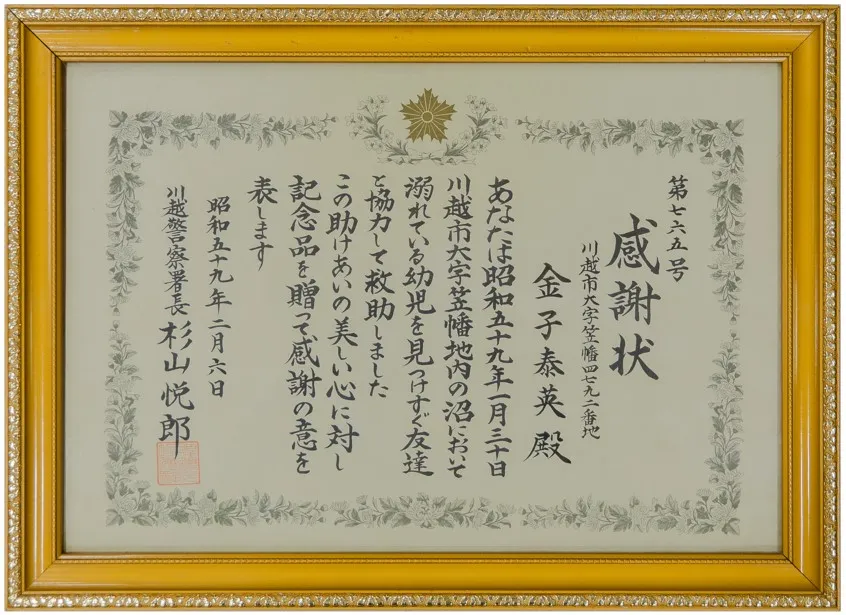 第七六五号
感謝状
川越市大字笠幡四七九二番地
金子泰英殿
あなたは昭和五十九年一月三十日
川越市大字笠幡地内の沼において
溺れている幼児を見つけすぐ友達
と協力して救助しました
この助けあいの美しい心に対し
記念品を贈って感謝の意を
表します
昭和五十九年二月六日
川越警察署長 杉山悦郎